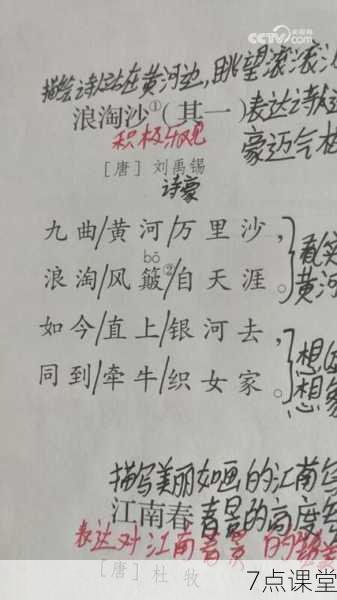 CCTV 央视网 com
描绘诗人站在黄河边,眺望滚滚
浪淘沙①(其一)表达诗人
积极乐观
豪迈气
[唐] 刘禹锡
诗豪
九曲/黄河/万里沙,
bǒ
浪淘/风簸②/自天涯。
看
黄河
如今/直上/银河去,
同到/牵牛/织女家。
想
想象
描写美丽如画的江南
江南春 春景的高度
表达对江南春景的
[唐] 杜牧
7点课堂